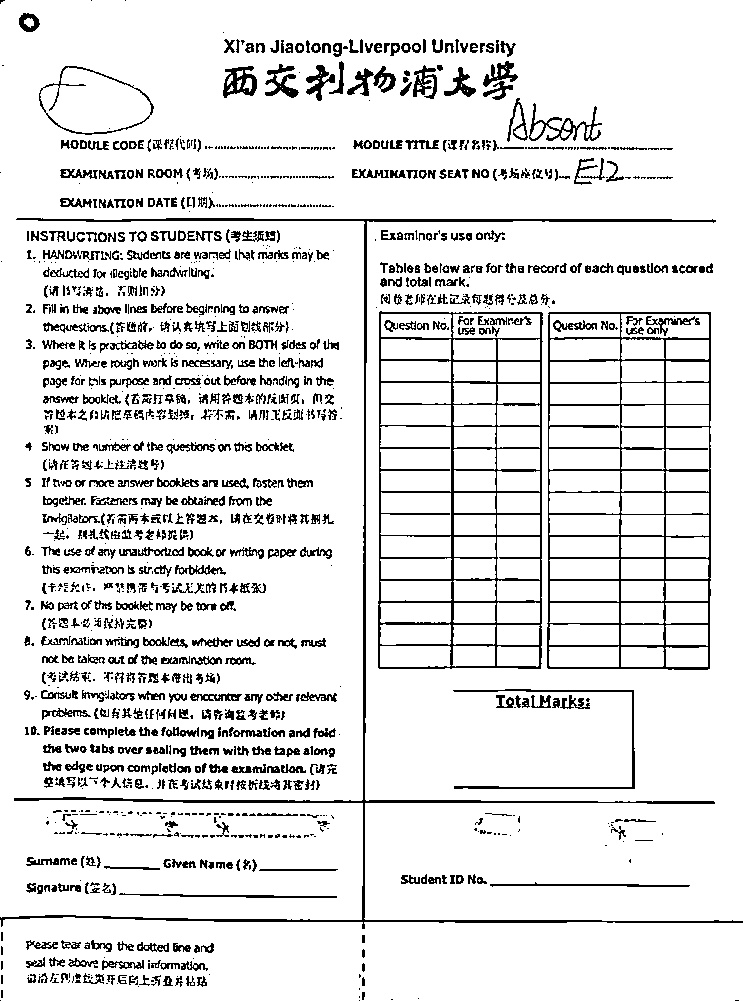 Xi'an Jiaotong-Liverpool University
西交利物浦大學
Absent
MODULE CODE (课程代码)
MODULE TITLE (课程名称)
EXAMINATION ROOM (考场)
EXAMINATION SEAT NO (考场座位号) E12
EXAMINATION DATE (日期)
INSTRUCTIONS TO STUDENTS (考生须知)
1. HANDWRITING: Students are warned that marks may be
deducted for illegible handwriting.
(请书写清楚，否则扣分)
2. Fill in the above lines before beginning to answer
thequestions.(答题前，请认真填写上面划线部分)
3. Where it is practicable to do so, write on BOTH sides of the
page. Where rough work is necessary, use the left-hand
page for this purpose and cross out before handing in the
answer booklet. (若需打草稿，请用答题本的反面页，但交
答题本之前请把草稿内容划掉；若不需，请用正反面书写答
案)
4 Show the number of the questions on this booklet.
(请在答题本上注清题号)
5 If two or more answer booklets are used, fasten them
together. Fasteners may be obtained from the
Invigilators.(若需两本或以上答题本，请在交卷时将其捆扎
一起，捆扎线由监考老师提供)
6. The use of any unauthorized book or writing paper during
this examination is strictly forbidden.
(未经允许，严禁携带与考试无关的书本纸张)
7. No part of this booklet may be torn off.
(答题本必须保持完整)
8. Examination writing booklets, whether used or not, must
not be taken out of the examination room.
(考试结束，不得将答题本带出考场)
9. Consult invigilators when you encounter any other relevant
problems. (如有其他任何问题，请咨询监考老师)
10. Please complete the following information and fold
the two tabs over sealing them with the tape along
the edge upon completion of the examination. (请完
整填写以下个人信息，并在考试结束时按折线将其密封)
Examiner's use only:
Tables below are for the record of each question scored
and total mark.
阅卷老师在此记录每题得分及总分。
Question No. For Examiner's use only Question No. For Examiner's use only
Total Marks:
Surname (姓) Given Name (名)
Signature (签名)
Student ID No.
Please tear along the dotted line and
seal the above personal information.
请沿左侧虚线撕开后向上折叠并粘贴